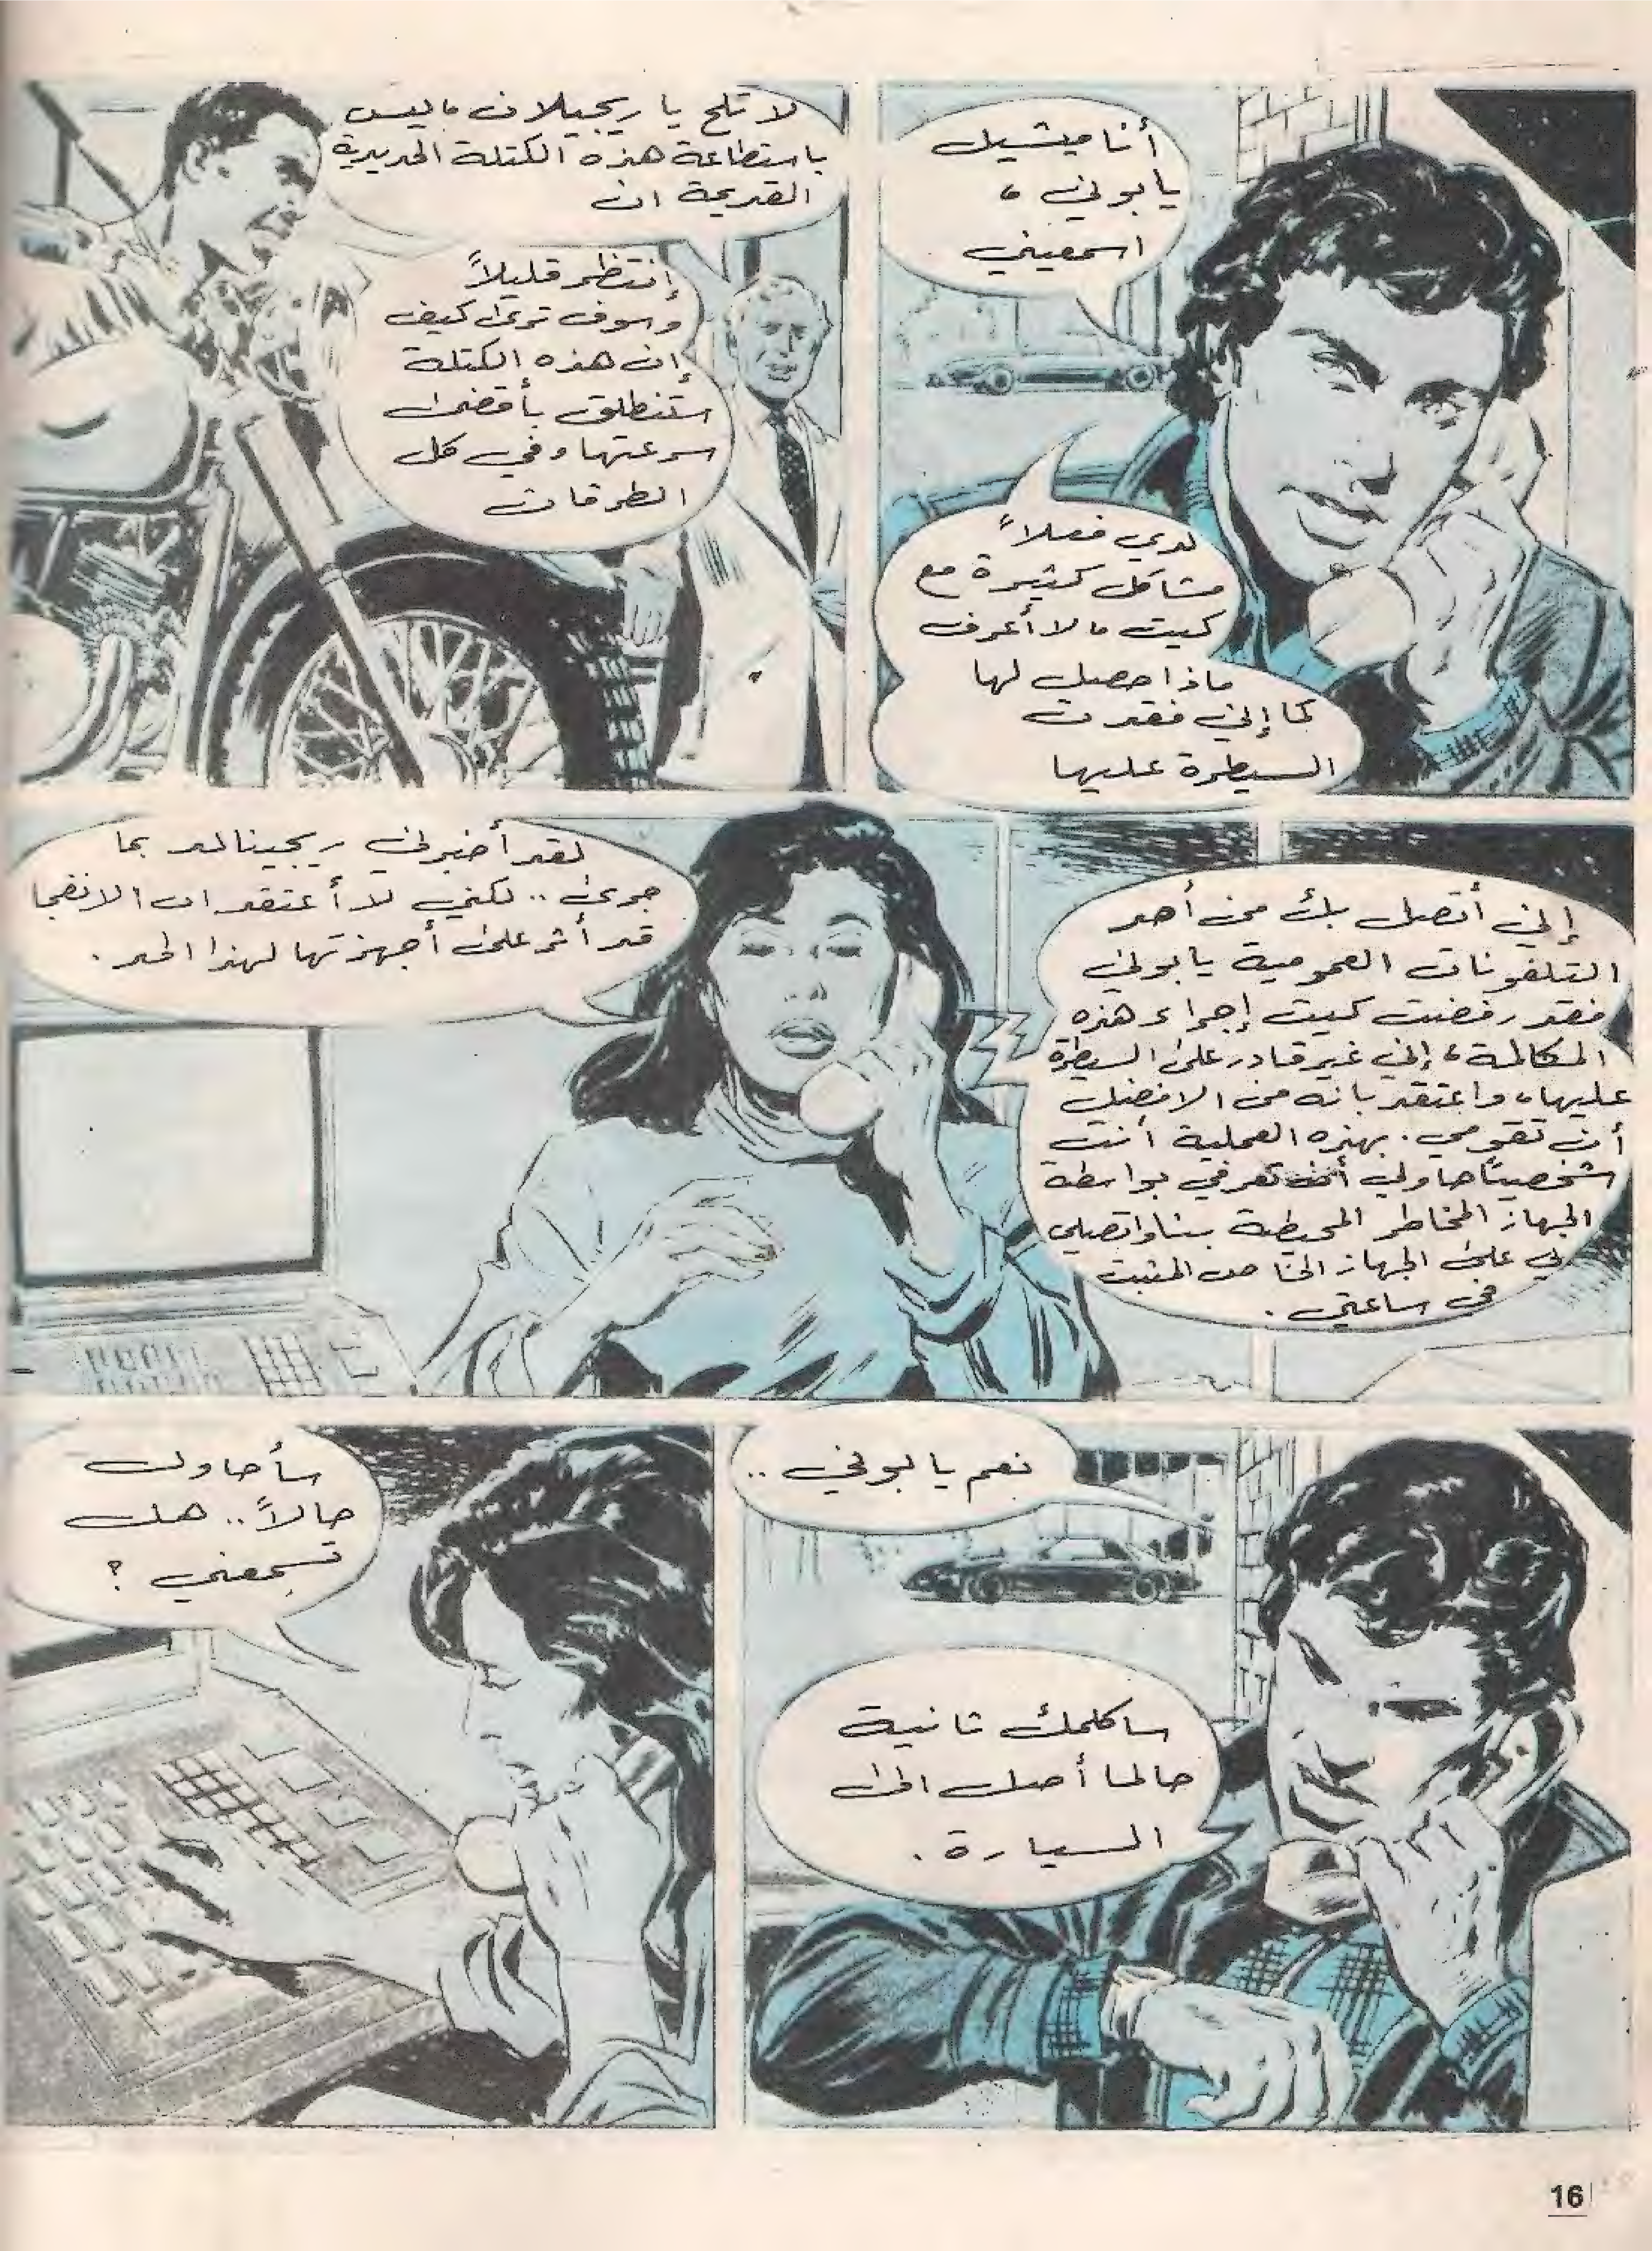 أنا ميشيل
يا بوني ،
اسمعيني
لدي فعلاً
مشاكل كثيرة مع
كيت ، لا أعرف
ماذا حصل لها
كما إني فقدت
السيطرة عليها
لا تلح يا ريجيلان ، ليس
باستطاعة هذه الكتلة الحديدية
القديمة ان
إنتظر قليلاً
وسوف ترى كيف
إن هذه الكتلة
ستنطلق بأقصى
سرعتها وفي كل
الطرقات
إني أتصل بك من أحد
التلفونات العمومية يا بوني
فقد رفضت كيت إجراء هذه
المكالمة ، إني غير قادر على السيطرة
عليها ، واعتقد بانه من الافضل
أن تقومي . بهذه العملية أنت
شخصياً حاولي أن تعرفي بواسطة
الجهاز المخاطر المحيطة بنا واتصلي
بي على الجهاز الخاص المثبت
في ساعتي .
لقد أخبرني ريجينالد بما
جرى .. لكني لا أعتقد ان الانفجا
قد أثر على أجهزتها لهذا الحد .
نعم يا بوني ..
ساكلمك ثانية
حالما أصل الى
السيارة .
سأحاول
حالاً .. هل
تسمعني ؟
16